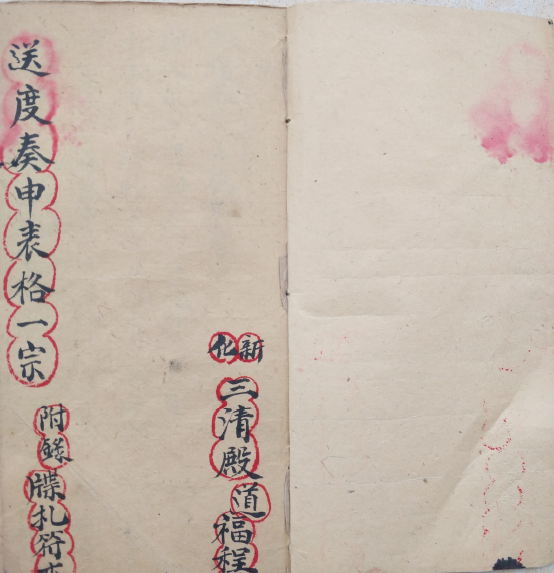 新化
三清殿道福程
送度奏申表格一宗
附錄
牒扎符